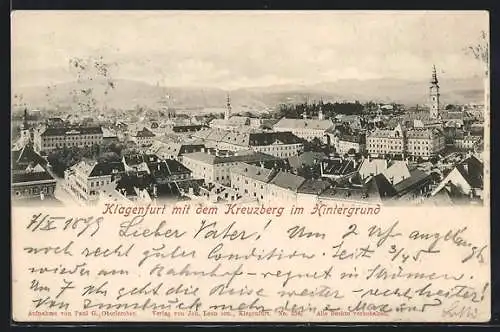 Klagenfurt mit dem Kreuzberg im Hintergrund
7/X 1899 Lieber Vater! Um 2 Uhr Anlangt
noch recht guter Condition. Seit 3/4 5
wieder am Bahnhof - regnet in Strömen.
Um 7 geht die Reise weiter - recht heiter!
Zum Donnerstag mehr dein Max und
Aufnahme von Paul G. Oberlercher. Verlag von Joh. Leon sen., Klagenfurt. No. 256. Alle Rechte vorbehalten.